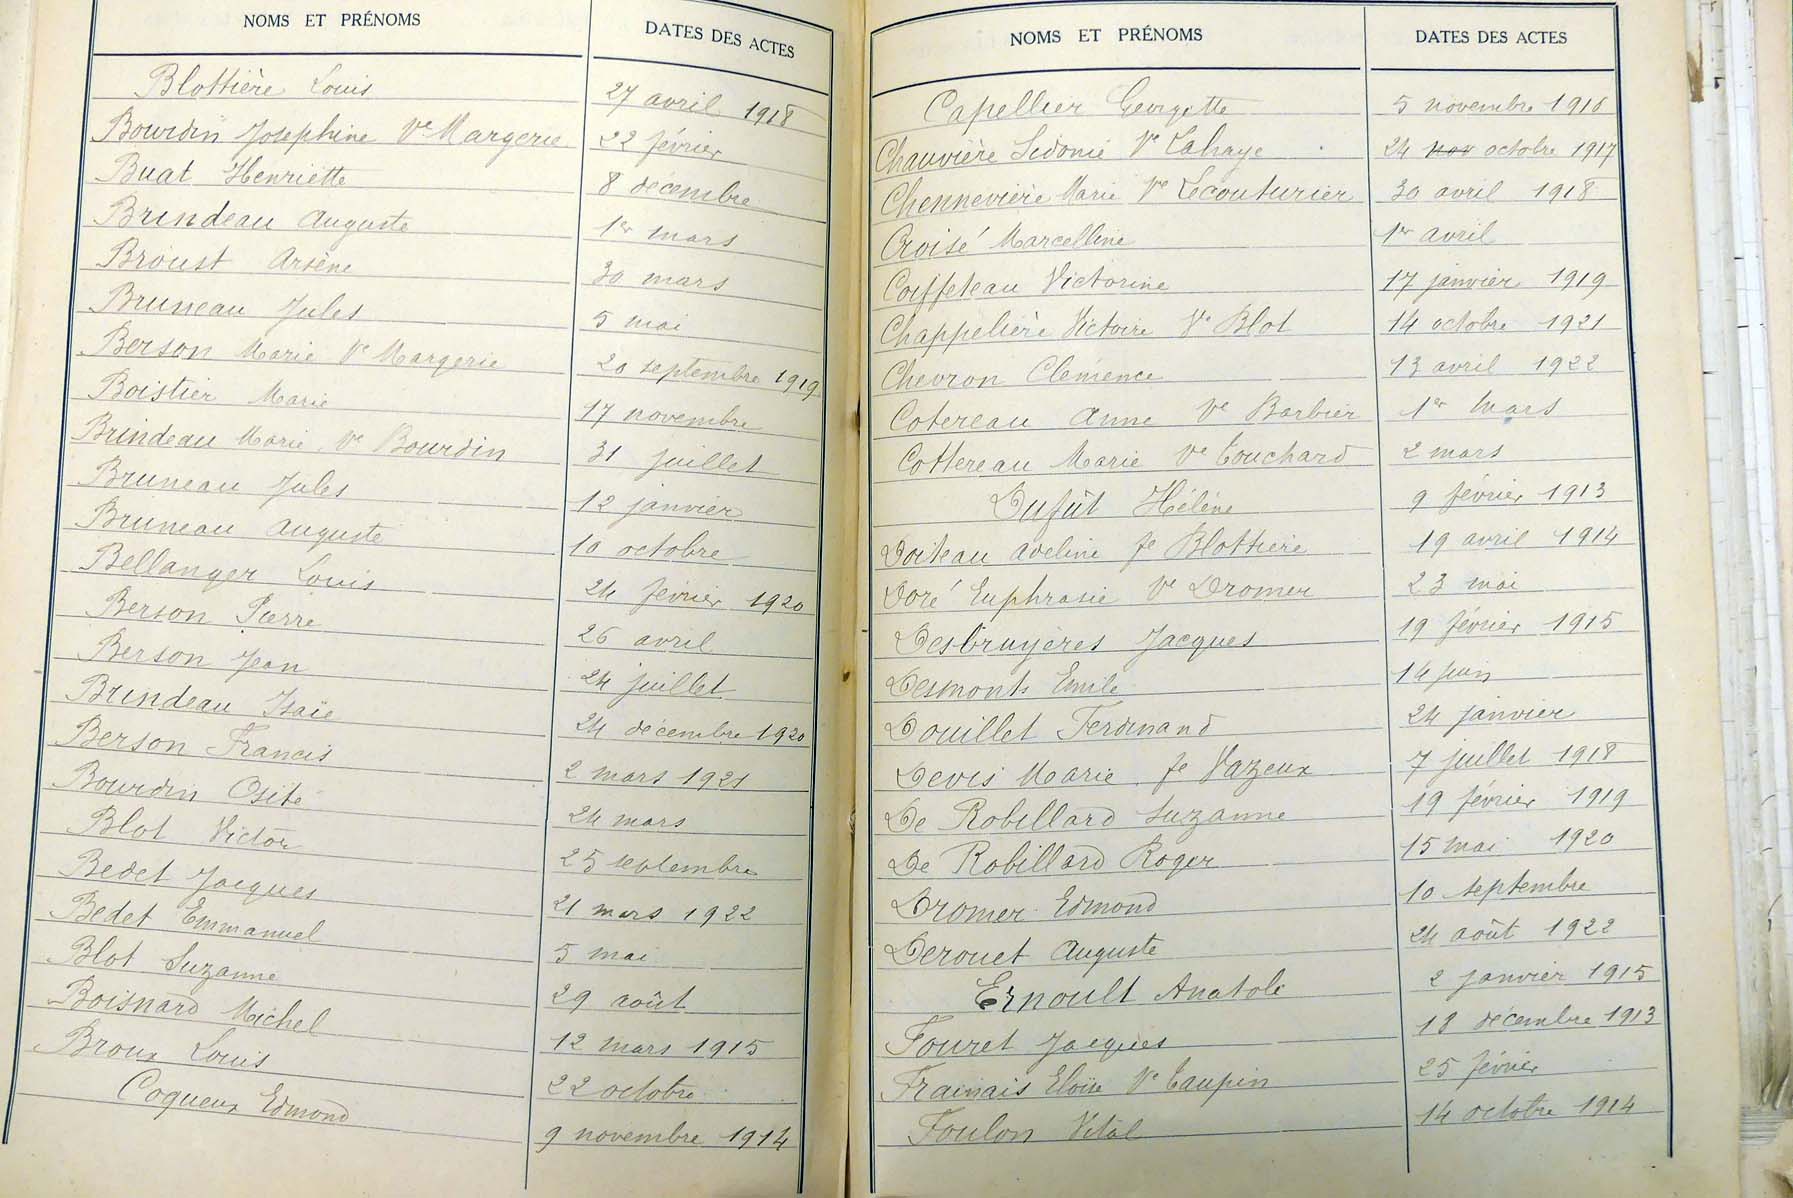 NOMS ET PRÉNOMS DATES DES ACTES
Blottière Louis 27 avril 1918
Bourdin Joséphine Ve Margerie 22 février
Buat Henriette 8 décembre
Brindeau Auguste 1er mars
Broust Arsène 30 mars
Bruneau Jules 5 mai
Berson Marie Ve Margerie 20 septembre 1919
Boistier Marie 17 novembre
Brindeau Marie Ve Bourdin 31 juillet
Bruneau Jules 12 janvier
Bruneau Auguste 10 octobre
Bellanger Louis 24 février 1920
Berson Pierre 26 avril
Berson Jean 24 juillet
Brindeau Isaïe 24 décembre 1920
Berson Francis 2 mars 1921
Bourdin Osite 24 mars
Blot Victor 25 septembre
Bedet Jacques 21 mars 1922
Bedet Emmanuel 5 mai
Blot Suzanne 29 août
Boisnard Michel 12 mars 1915
Broux Louis 22 octobre
Coqueux Edmond 9 novembre 1914
NOMS ET PRÉNOMS DATES DES ACTES
Capellier Georgette 5 novembre 1916
Chauvière Sidonie Ve Lahaye 24 nov octobre 1917
Chennevière Marie Ve Lecouturier 30 avril 1918
Croisé Marcelline 1er avril
Coiffeteau Victorine 17 janvier 1919
Chappelière Victoire Ve Blot 14 octobre 1921
Chevron Clémence 13 avril 1922
Cotereau Anne Ve Barbier 1er mars
Cottereau Marie Ve Touchard 2 mars
Dufût Hélène 9 février 1913
Doiteau Aveline fe Blottière 19 avril 1914
Doré Euphrasie Ve Dromer 23 mai
Desbruyères Jacques 19 février 1915
Desmonts Emile 14 juin
Douillet Ferdinand 24 janvier
Devis Marie fe Vazeux 7 juillet 1918
De Robillard Suzanne 19 février 1919
De Robillard Roger 15 mai 1920
Dromer Edmond 10 septembre
Derouet Auguste 24 août 1922
Ernoult Anatole 2 janvier 1915
Fouret Jacques 18 décembre 1913
Frainais Eloïse Ve Taupin 25 février
Foulon Vital 14 octobre 1914